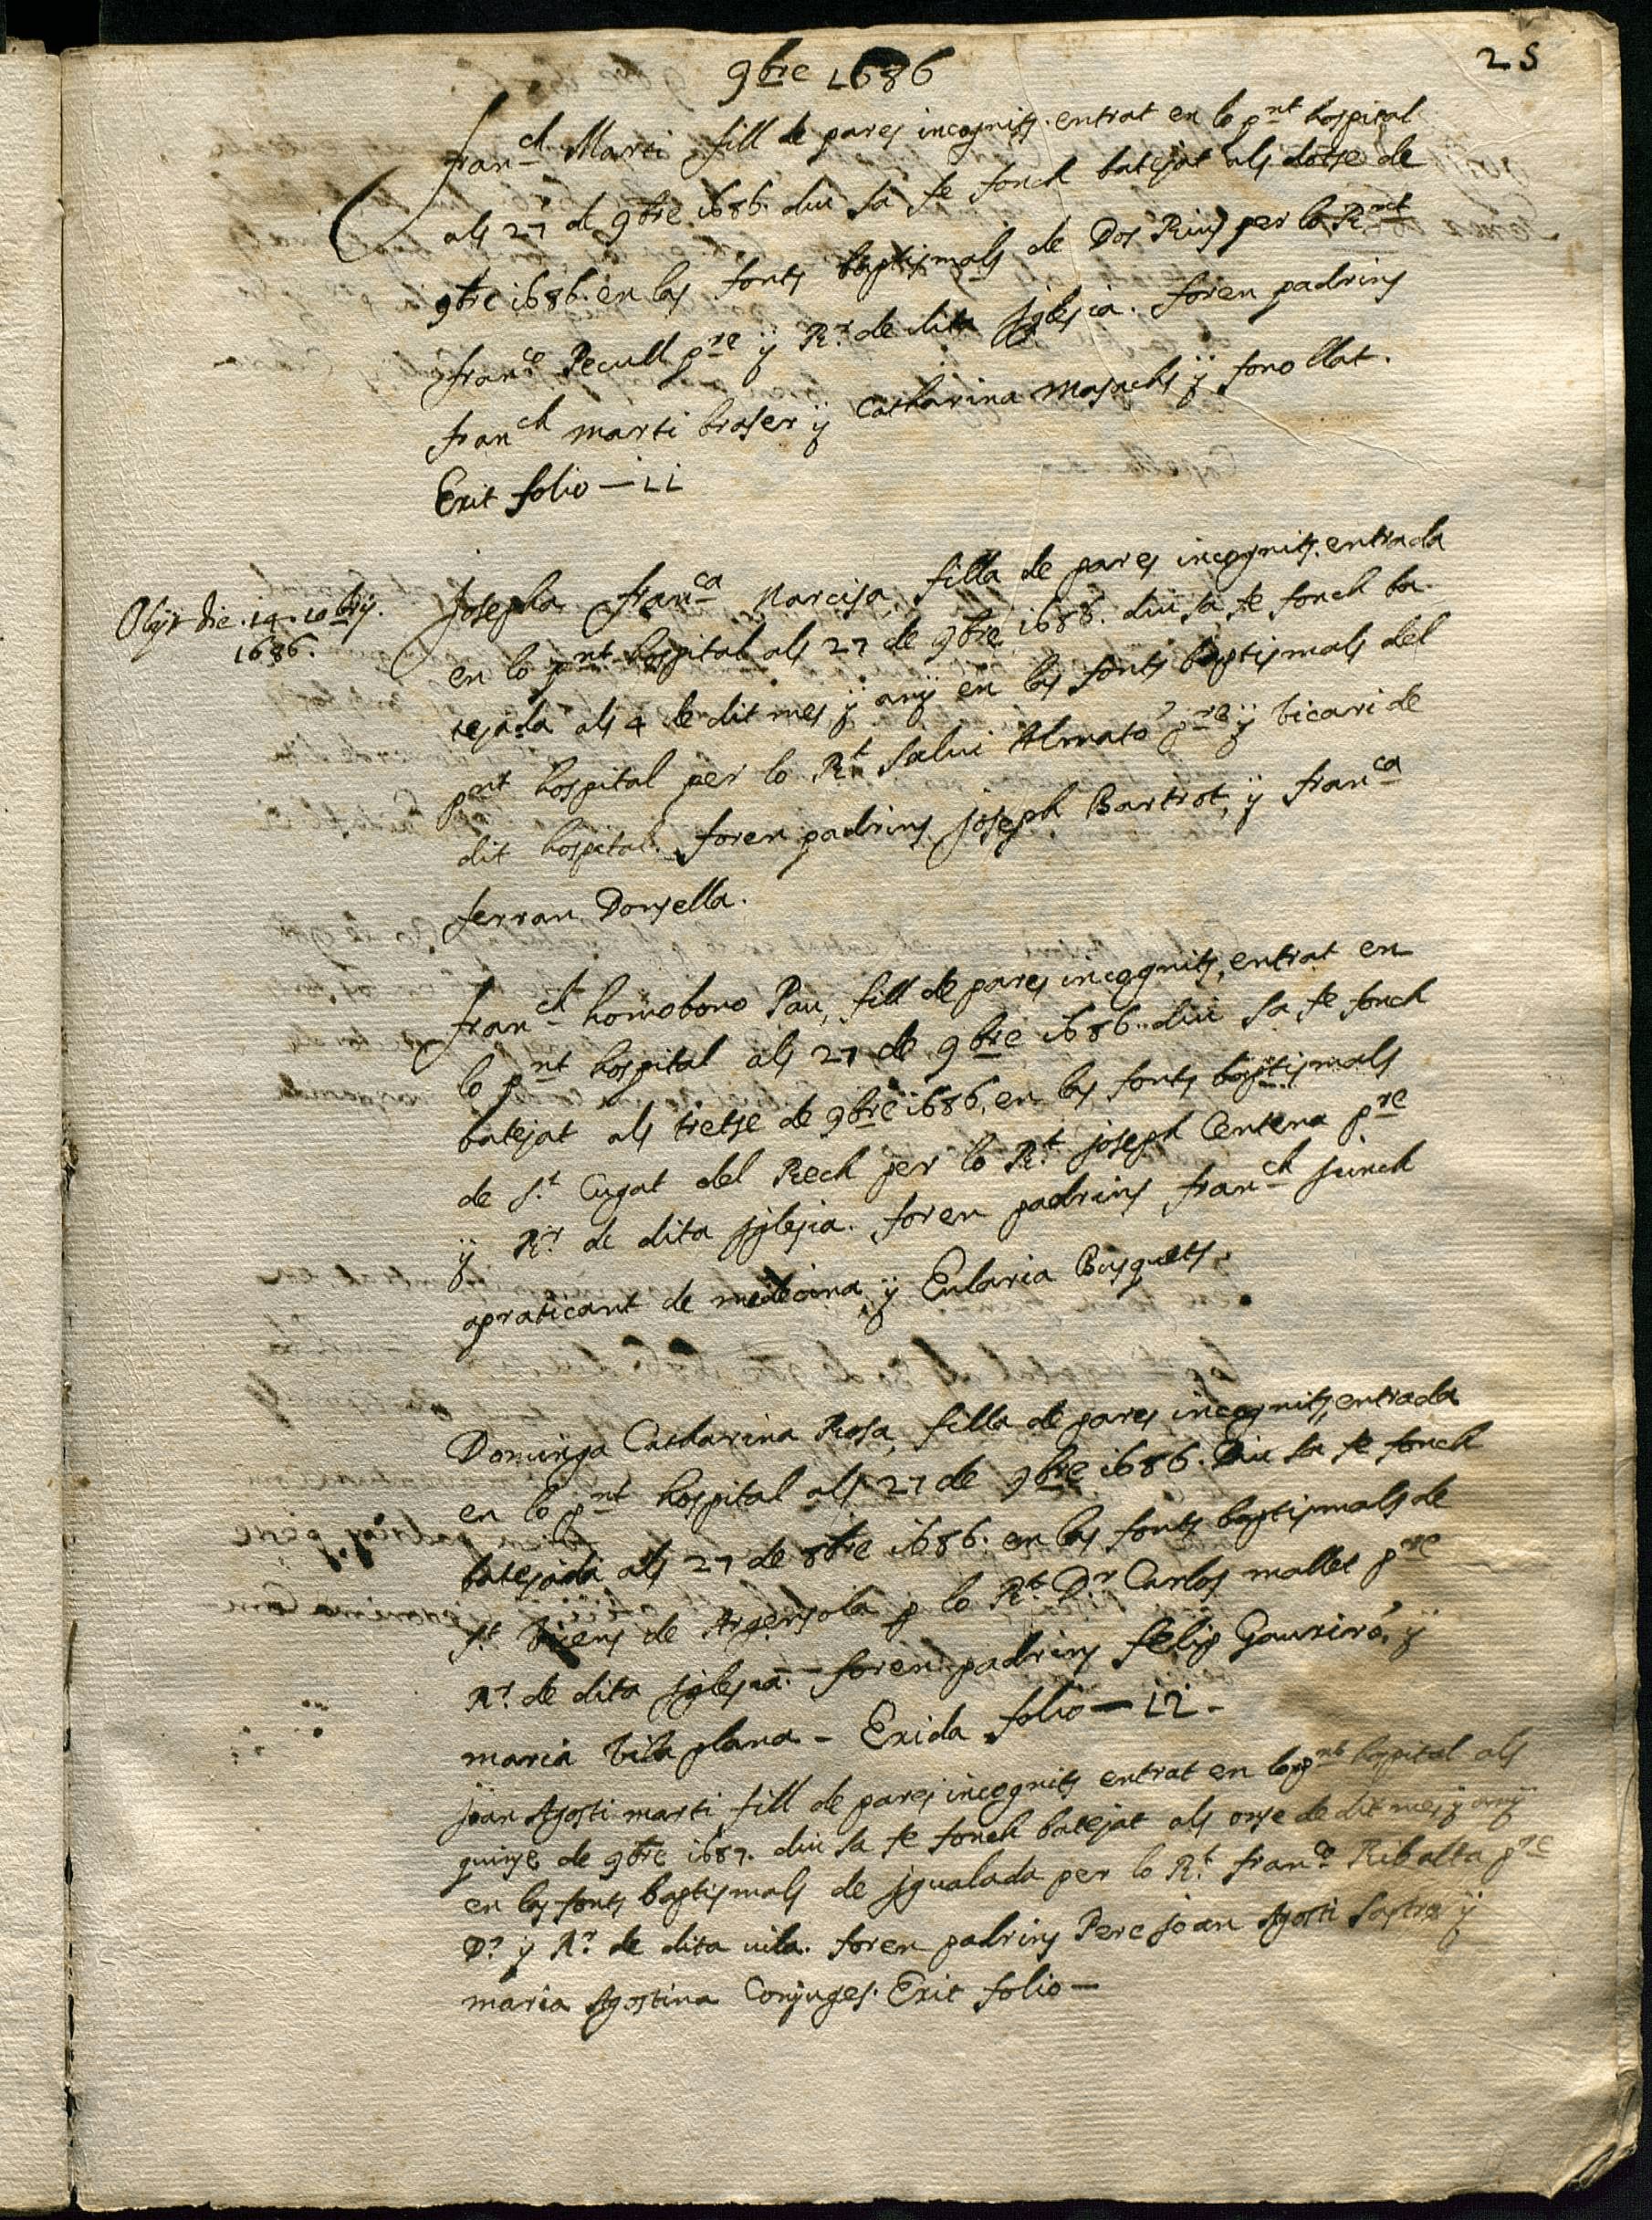 25
9bre 1686
franch Marti fill de pares incognits. entrat en lo pnt hospital
als 27 de 9bre 1686. diu sa fe fonch batejat als dotse de
9bre 1686. en las fonts baptismals de Dos Rius per lo Rnt
franch Pecull pre ÿ Rr. de dita Jglesia. foren padrins
franch marti braser ÿ Catharina Masachs ÿ fonollat.
Exit folio — 11
Obijt die. 14. 10bris.
1686.
Josepha franca Narcisa, filla de pares incognits. entrada
en lo pnt hospital als 27 de 9bre 1686. diu sa fe fonch ba-
tejada als 4 de dit mes ÿ anÿ en las fonts baptismals del
pnt hospital per lo Rt Salui Almato pre ÿ Vicari de
dit hospital. foren padrins joseph Bartrot, ÿ franca
ferran Donsella.
franch homobono Pau, fill de pares incognits, entrat en
lo pnt hospital als 27 de 9bre 1686. diu sa fe fonch
batejat als tretse de 9bre 1686. en las fonts baptismals
de St. Cugat del Rech per lo Rt. joseph Centena pre
ÿ Rr. de dita jglesia. foren padrins franch junch
apraticant de medecina ÿ Eularia Busquets.
Dominga Catharina Rosa, filla de pares incognits, entrada
en lo pnt hospital als 27 de 9bre 1686. Diu sa fe fonch
batejada als 27 de 8bre 1686. en las fonts baptismals de
St. Vicens de Argensola p lo Rt. Dr Carlos mallet pre
Rr. de dita jglesia. foren padrins felip Gauxiró, ÿ
maria Vilaplana - Exida folio — 12 -
joan Agosti marti fill de pares incognits entrat en lo pnt hospital als
quinse de 9bre 1687. diu sa fe fonch batejat als onse de dit mes ÿ anÿ
en las fonts baptismals de jgualada per lo Rt. franco Ribalta pre
Dr. ÿ Rr. de dita uila. foren padrins Pere joan Agosti sastre ÿ
maria Agostina Conjuges. Exit folio —